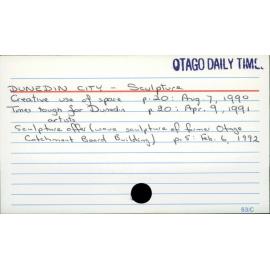 OTAGO DAILY TIME.
DUNEDIN CITY - Sculpture
Creative use of space p.20: Aug 7, 1990
Times tough for Dunedin p 20: Apr. 9, 1991
artists
Sculpture offer (wave sculpture of former Otago
Catchment Board Building) p.5: Feb. 6, 1992